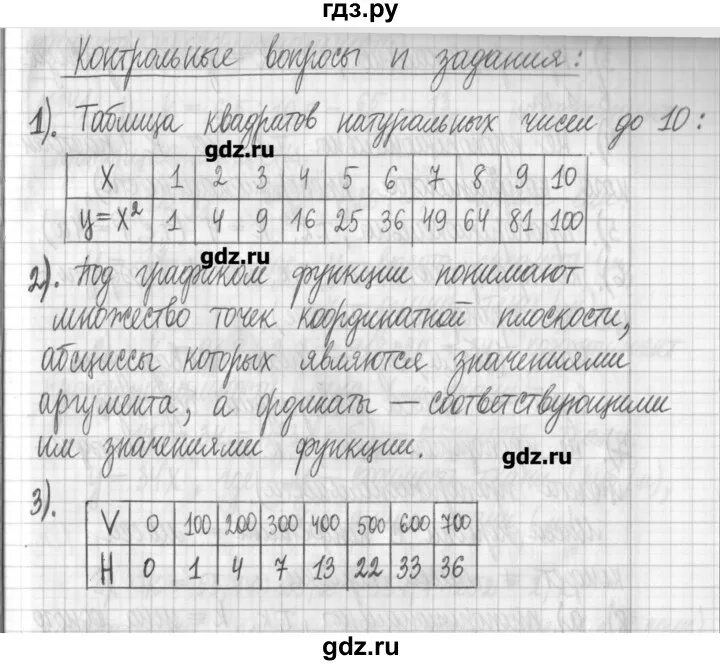 гдз.ру
Контрольные вопросы и задания:
1). Таблица квадратов натуральных чисел до 10:
gdz.ru
X 1 2 3 4 5 6 7 8 9 10
y=x² 1 4 9 16 25 36 49 64 81 100
gdz.ru
2). Под графиком функции понимают
множество точек координатной плоскости,
абсциссы которых являются значениями
аргумента, а ординаты — соответствующими
им значениями функции.
gdz.ru
3).
V 0 100 200 300 400 500 600 700
H 0 1 4 7 13 22 33 36
gdz.ru